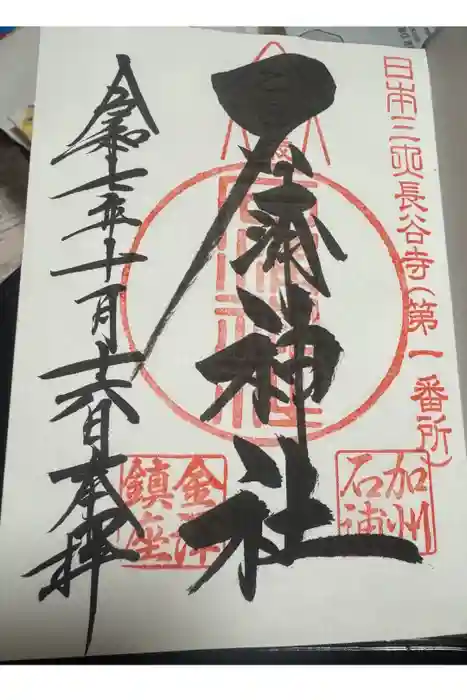 日本三大長谷寺(第一番所)
石浦神社
加州
石浦
令和七年十月十六日奉拝
金澤
鎮座